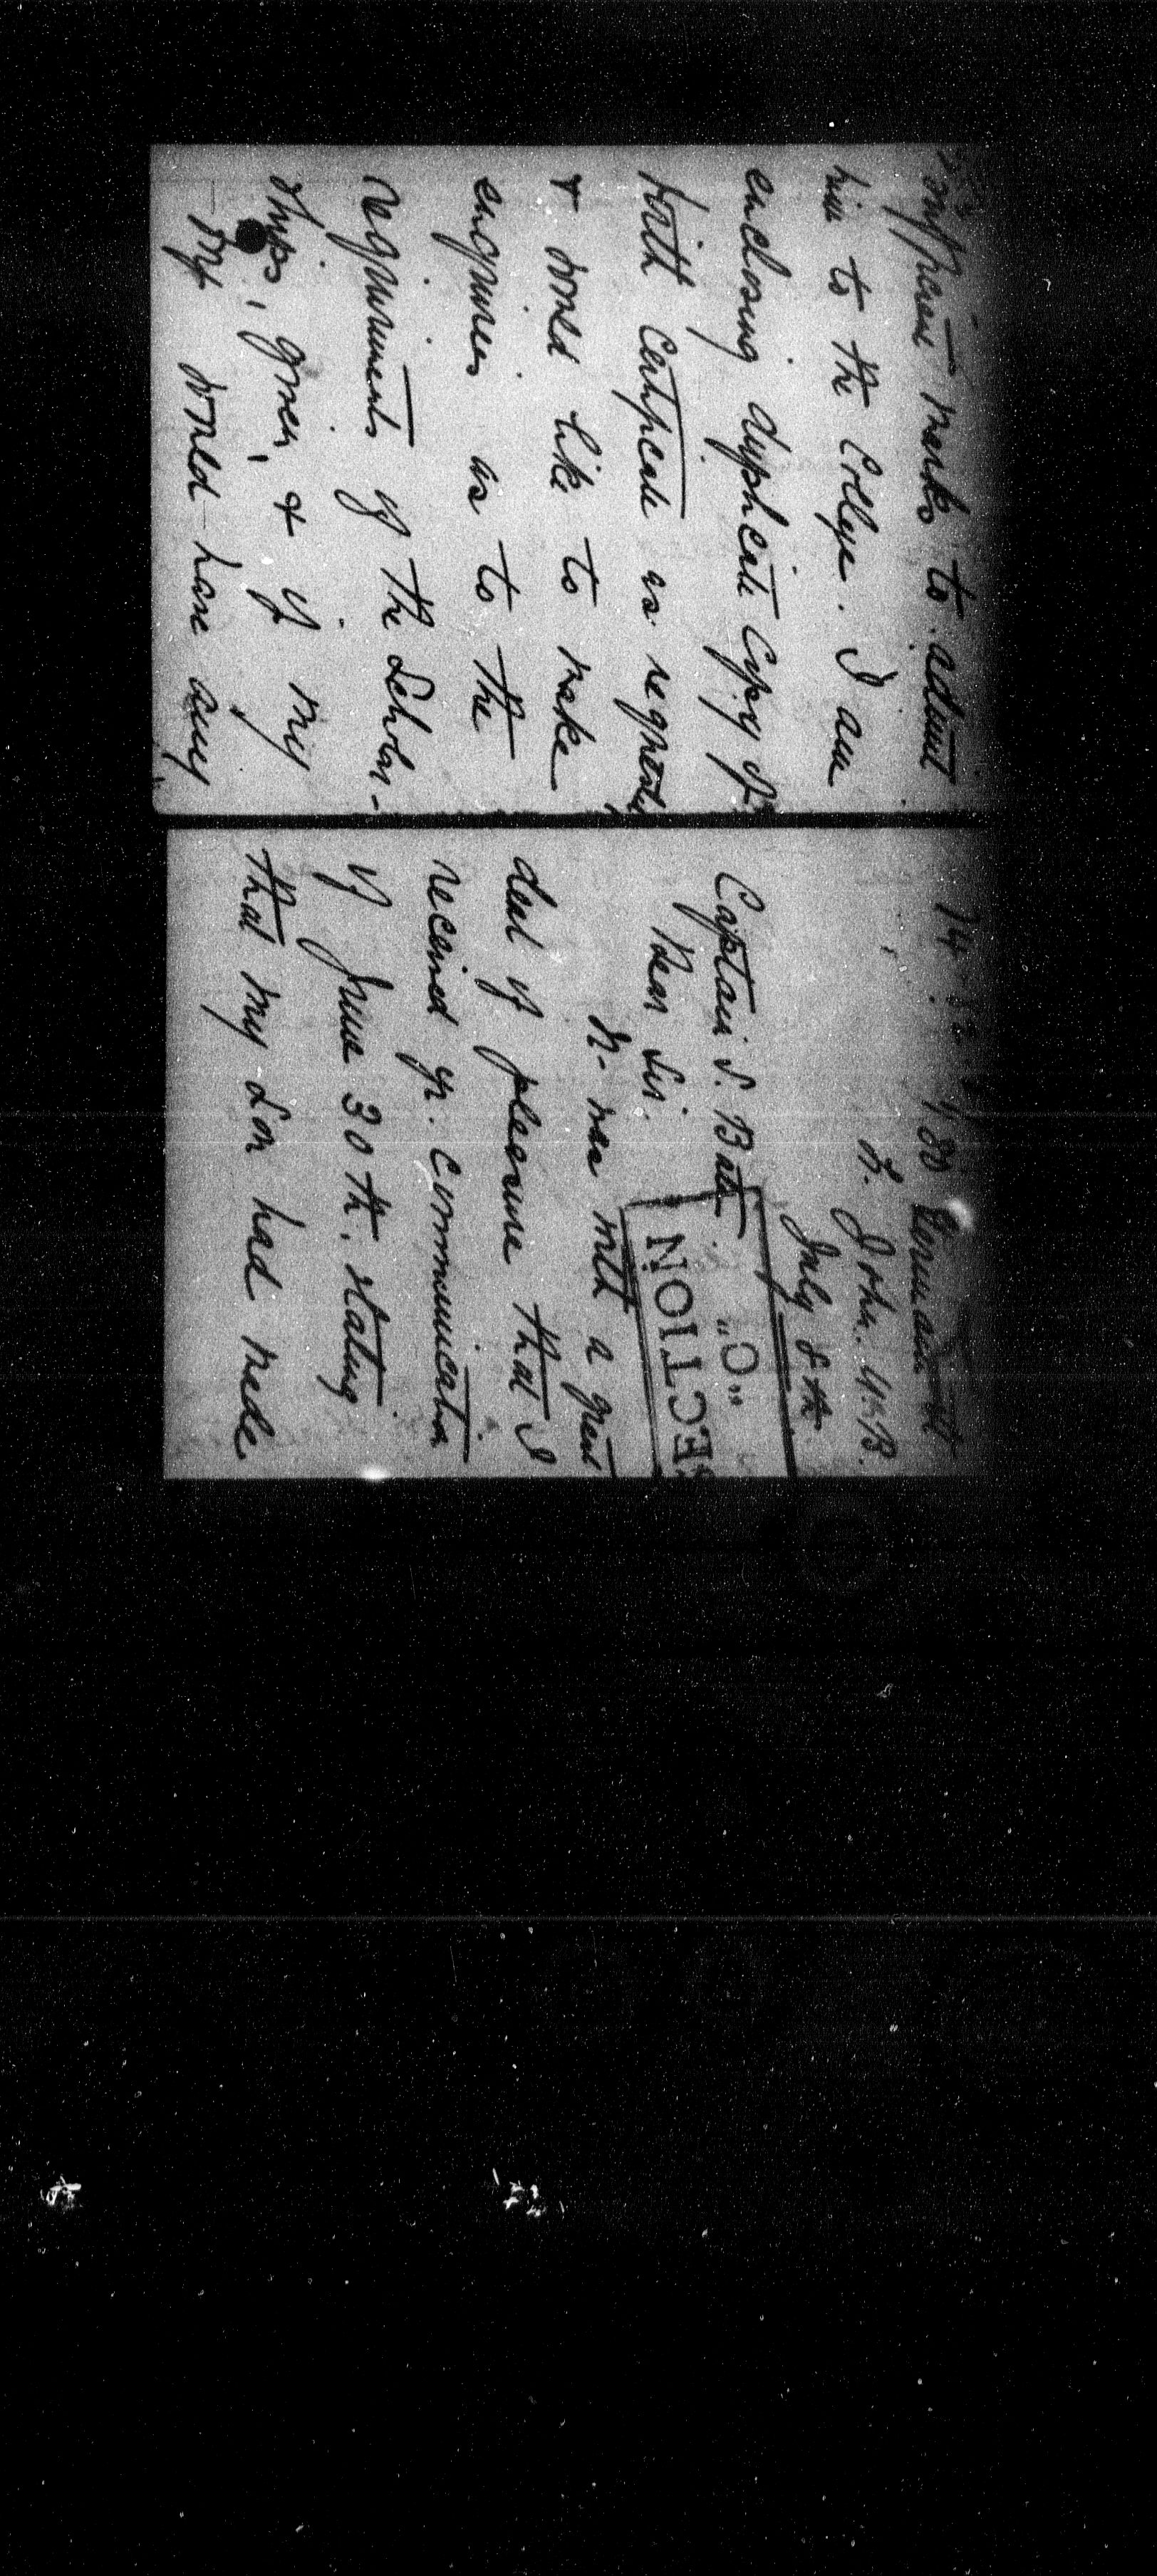 180 Germain St
St. John. N.B.
July 8th.
"C"
SECTION
Captain S. Bate
Dear Sir.
It was with a great
deal of pleasure that I
received yr. communication
of June 30th. stating
that my son had made
sufficient marks to admit
him to the College. I am
enclosing duplicate copy of
birth certificate as requested,
& would like to make
enquiries as to the
requirements of the Scholar-
ships, given, & if my
my would have any